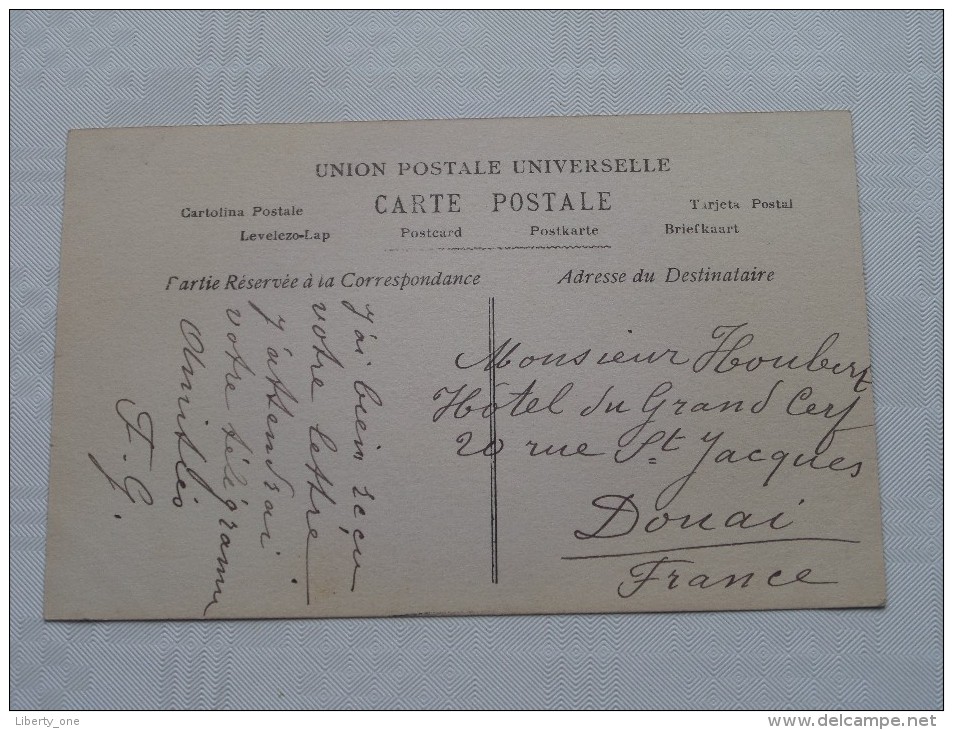 UNION POSTALE UNIVERSELLE
CARTE POSTALE
Cartolina Postale
Tarjeta Postal
Levelezo-Lap
Postcard
Postkarte
Briefkaart
Partie Réservée à la Correspondance
Adresse du Destinataire
J'ai bien reçu
votre lettre
j'attendrai
votre télégramme
Amitiés
F. G.
Monsieur Houbert
Hôtel du Grand Cerf
20 rue St Jacques
Douai
France
Liberty_one
www.delcampe.net